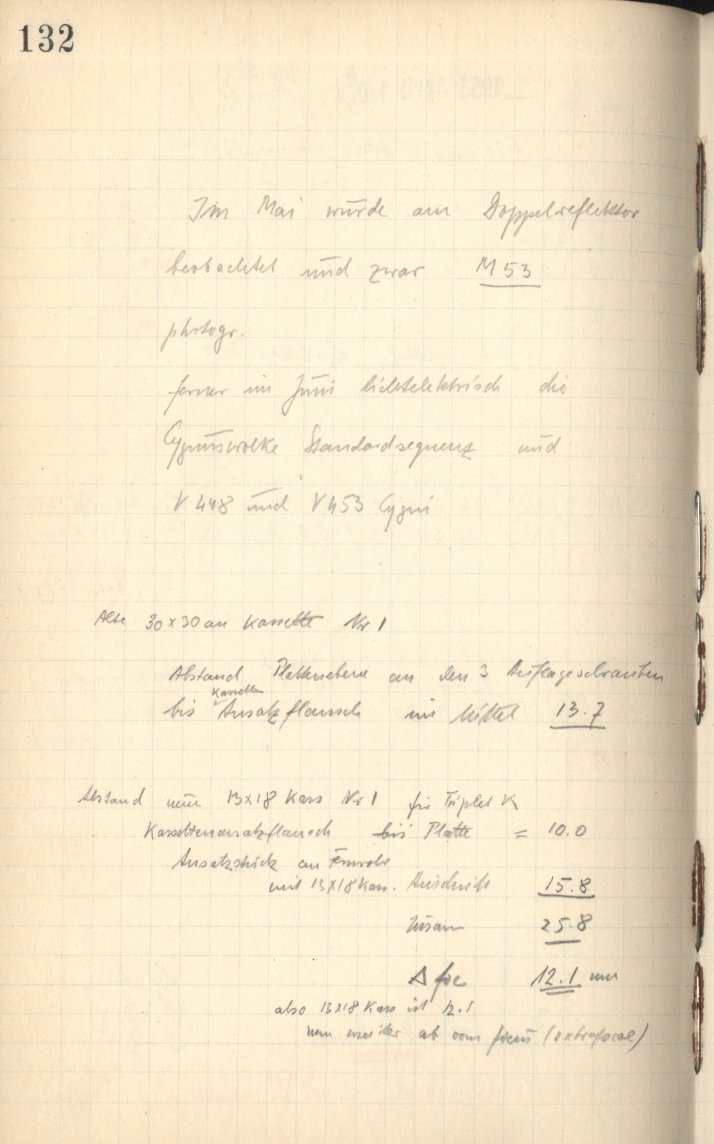 132
Im Mai wurde am Doppelreflektor
beobachtet und zwar M 53
photogr.
ferner im Juni lichtelektrisch die
Cygnuswolke Standardsequenz und
V 448 und V 453 Cygni
Alte 30x30 cm Kassette Nr 1
Abstand Plattenebene an den 3 Auflageschrauben
Kassetten
bis Ansatzflansch im Mittel 13.7
Abstand neue 13x18 Kass Nr 1 für Triplet K
Kassettenansatzflansch bis Platte = 10.0
Ansatzstück am Fernrohr
mit 13x18 Kass. 15.8
Zusam 25.8
Δ foc 12.1 mm
also 13x18 Kass ist 12.1
mm weiter ab vom focus (extrafocal)